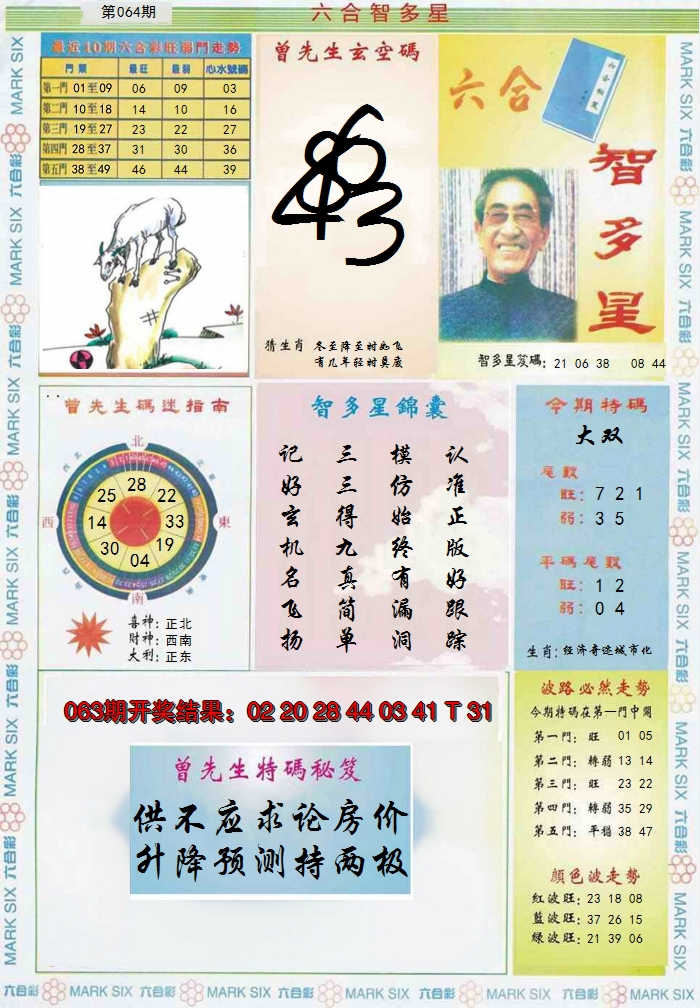 第064期
六合智多星
最近10期六合彩旺弱門走勢
門 類 最旺 最弱 心水號碼
第一門 01至09 06 09 03
第二門 10至18 14 10 16
第三門 19至27 23 22 27
第四門 28至37 31 30 36
第五門 38至49 46 44 39
曾先生玄空碼
猜生肖
冬至降至时如飞
有几年轻时莫废
六合
六合秘笈
智多星
智多星笈碼: 21 06 38 08 44
曾先生碼迷指南
北
西北
東北
西
東
南
28
25 22
14 33
30 19
04
喜神: 正北
財神: 西南
大利: 正东
智多星錦囊
认准正版好跟踪
模仿始终有漏洞
三三得九真简单
记好玄机名飞扬
今期特碼
大双
尾數
旺: 7 2 1
弱: 3 5
平碼尾數
旺: 1 2
弱: 0 4
生肖: 经济奇迹城市化
063期开奖结果: 02 20 28 44 03 41 T 31
曾先生特碼秘笈
供不应求论房价
升降预测持两极
波路必然走勢
今期特碼在第一門中開
第一門: 旺 01 05
第二門: 轉弱 13 14
第三門: 旺 23 22
第四門: 轉弱 35 29
第五門: 平穩 38 47
顏色波走勢
紅波旺: 23 18 08
藍波旺: 37 26 15
綠波旺: 21 39 06
MARK SIX 六合彩 MARK SIX 六合彩 MARK SIX 六合彩 MARK SIX 六合彩